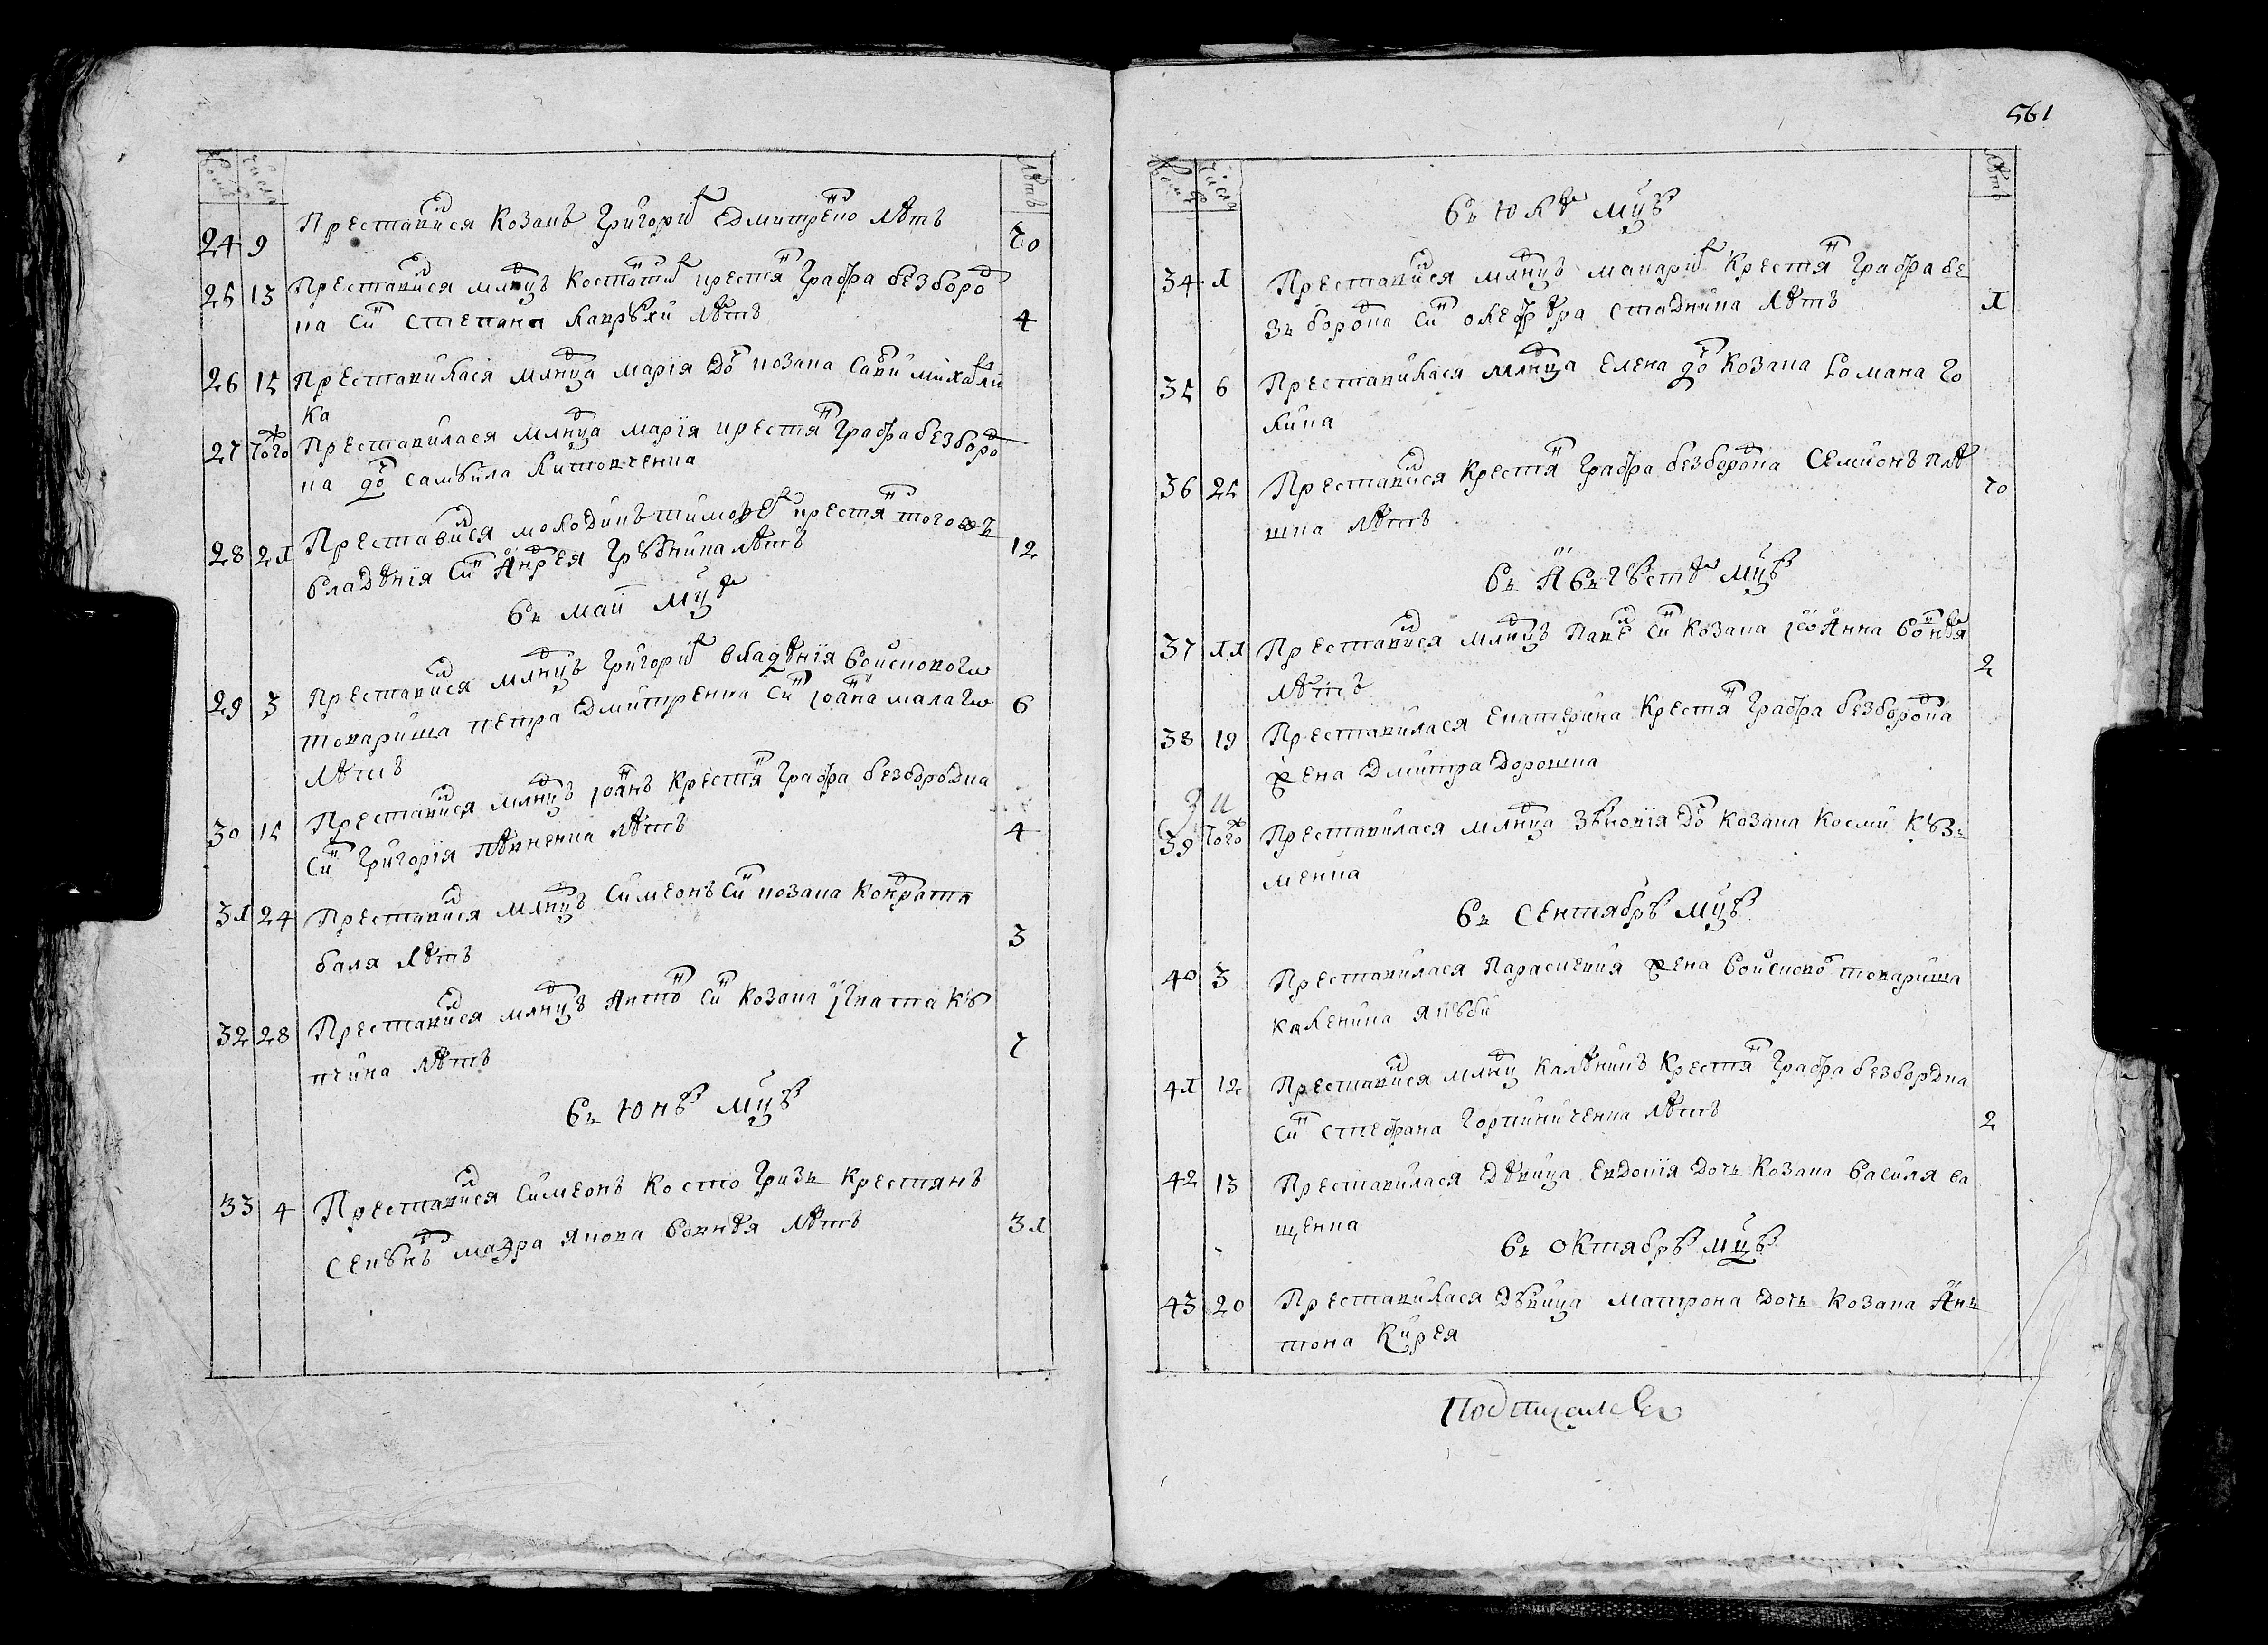 24 9 Преставися козакъ Григорий Дмитренко лѣтъ 70
25 13 Преставися млнцъ Костантий крестян графа безборо
ка син Степана Лаврѣхи лѣтъ 4
26 15 Преставилася млнца Мария доч козака Сави Михайли
ка
27 Того ж Преставилася млнца Мария крестян графа безбород
ка доч Самѣила Литовченка
28 21 Преставися молодикъ Тимофей крестян того жъ
владѣния син Андрея Грѣбника лѣтъ 12
въ май мцѣ
29 3 Преставися млнцъ Григорий владѣния войскового
товариша Петра Дмитренка син Iоана Малаго 6
лѣтъ
30 15 Преставися млнцъ Iоанъ крестян графа безбородка
син Григория Пѣвненка лѣтъ 4
31 24 Преставися млнцъ Симеонъ син козака Кондрата
баля лѣтъ 3
32 28 Преставися млнцъ Антон син козака Iгната Кѣ
пчика лѣтъ 7
въ Юнѣ мцѣ
33 4 Преставися Симеонъ Косто Гризъ крестянъ
Якова лѣтъ 31
561
въ Юлѣ мцѣ
34 1 Преставися млнцъ Макарий крестян графа бе
зъ бородка син Олефѣра Стадника лѣтъ 1
35 6 Преставилася млнца Елена доч козака Романа Го
лика
36 25 Преставися крестян графа безбородка Семионъ Плѣ
шка лѣтъ 70
въ Авъгѣстѣ мцѣ
37 11 Преставися млнцъ Павел син козака Iоанна
лѣтъ 2
38 19 Преставилася Екатерина крестян графа безбородка
жена Дмитра Дорошка
39 Того ж Преставилася млнца Зѣновия доч козака Косми Кѣзъ
менка
въ Сентябрѣ мцѣ
40 3 Преставилася Параскевия жена войсково товариша
Каленика Якѣби
41 12 Преставися млнц Калѣникъ крестян графа безбордка
син Стефана Горпиниченка лѣтъ 2
42 13 Преставилася дѣвица Евдокия дочъ козака Василя са
щенка
въ Октябрѣ мцѣ
43 20 Преставилася дѣвица Матрона дочъ козака Анъ
тона Кирея